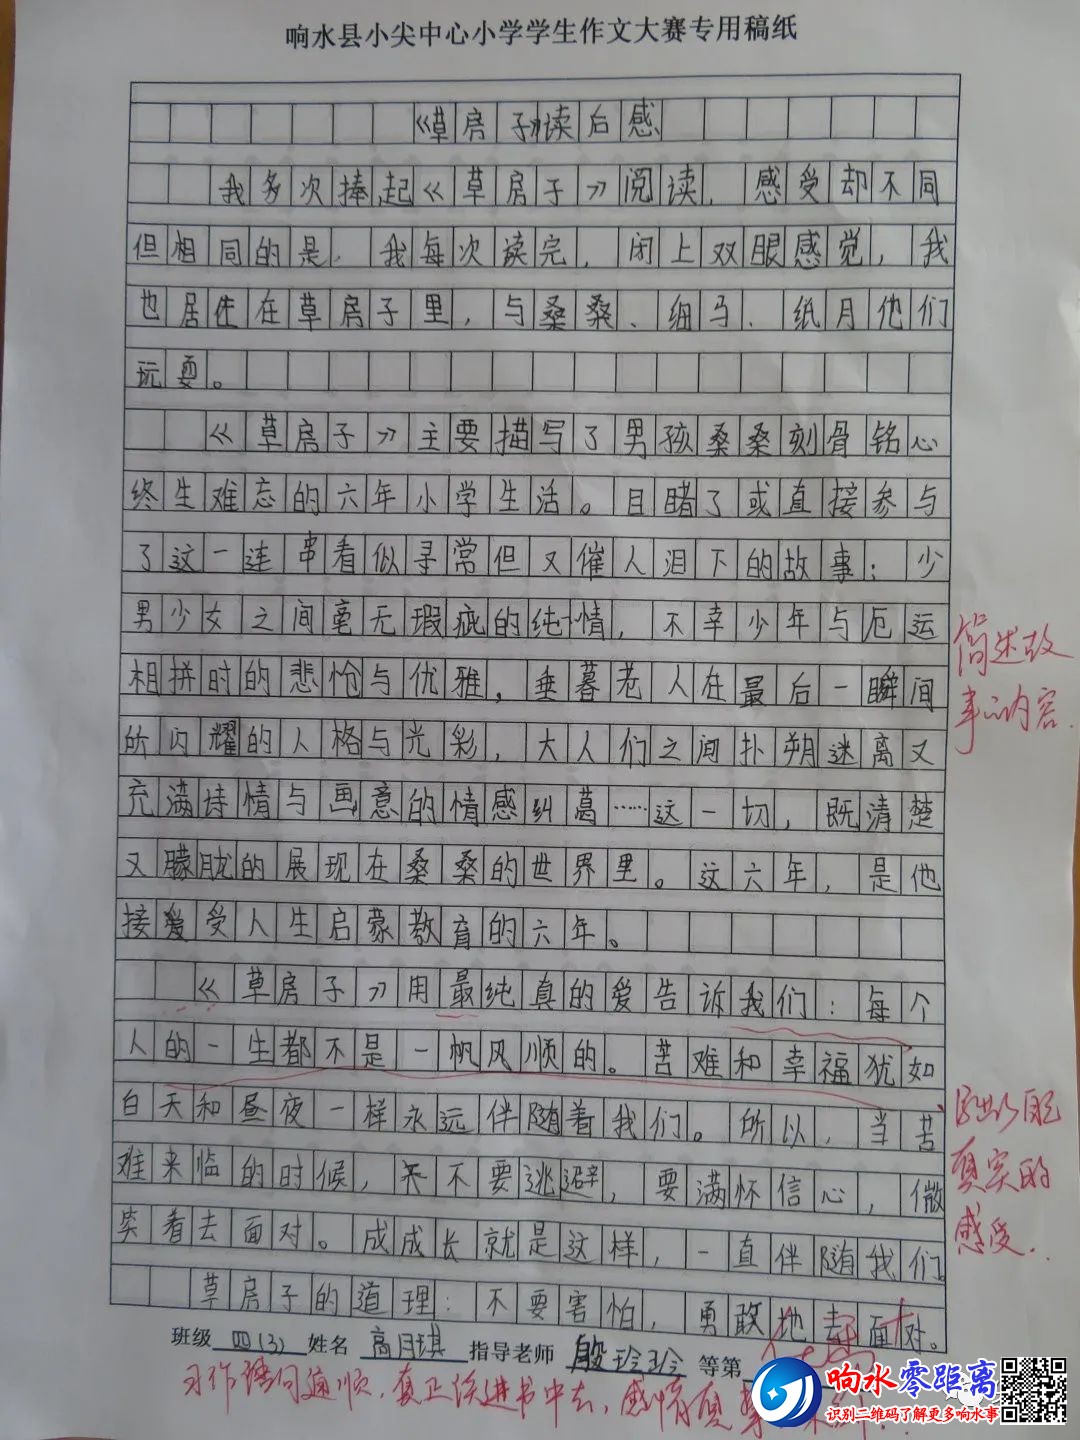 响水县小尖中心小学学生作文大赛专用稿纸
《草房子》读后感
我多次捧起《草房子》阅读，感受却不同
但相同的是，我每次读完，闭上双眼感觉，我
也居住在草房子里，与桑桑、细马、纸月他们
玩耍。
《草房子》主要描写了男孩桑桑刻骨铭心
终生难忘的六年小学生活。目睹了或直接参与
了这一连串看似寻常但又催人泪下的故事：少
男少女之间毫无瑕疵的纯情，不幸少年与厄运
相拼时的悲怆与优雅，垂暮老人在最后一瞬间
所闪耀的人格与光彩，大人们之间扑朔迷离又
充满诗情与画意的情感纠葛……这一切，既清楚
又朦胧的展现在桑桑的世界里。这六年，是他
接受人生启蒙教育的六年。
《草房子》用最纯真的爱告诉我们：每个
人的一生都不是一帆风顺的。苦难和幸福犹如
白天和昼夜一样永远伴随着我们。所以，当苦
难来临的时候，不要逃避，要满怀信心，微
笑着去面对。成成长就是这样，一直伴随我们。
草房子的道理：不要害怕，勇敢地去面对。
简述故
事的内容.
真实的
感受.
班级 四(3) 姓名 高月琪 指导老师 殷玲玲 等第
习作语句通顺，真正走进书中去，感情真
响水零距离
识别二维码了解更多响水事